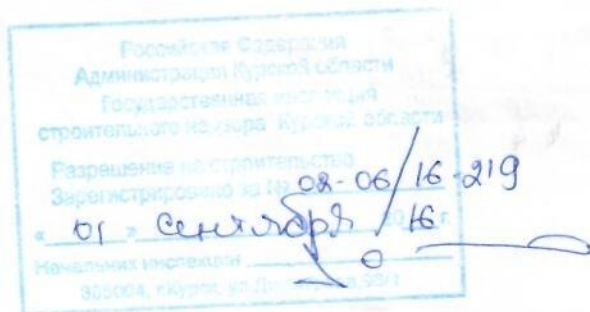 Российская Федерация
Администрация Курской области
Государственная инспекция
строительного надзора Курской области
Разрешение на строительство
Зарегистрировано за № 02-06/16-219
« 01 » сентября 2016 г.
Начальник инспекции
305004, г.Курск, ул. 95/1